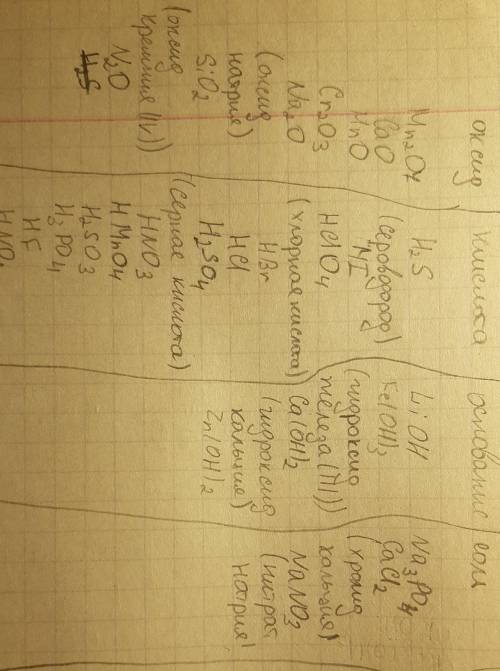 оксид
Mn₂O7
CaO
MnO
Cr₂O3
Na₂O
(оксид
натрия)
SiO₂
(оксид
кремния (IV))
N₂O
H₂S
кислота
H₂S
(сероводород)
HI
HClO4
(хлорная кислота)
HBr
HCl
H₂SO4
(серная кислота)
HNO3
HMnO4
H₂SO3
H3PO4
HF
основание
LiOH
Fe(OH)3
(гидроксид
железа (III))
Ca(OH)₂
(гидроксид
кальция)
Zn(OH)2
соли
Na3PO4
CaCl₂
кальция)
NaNO3
(нитрат
натрия)